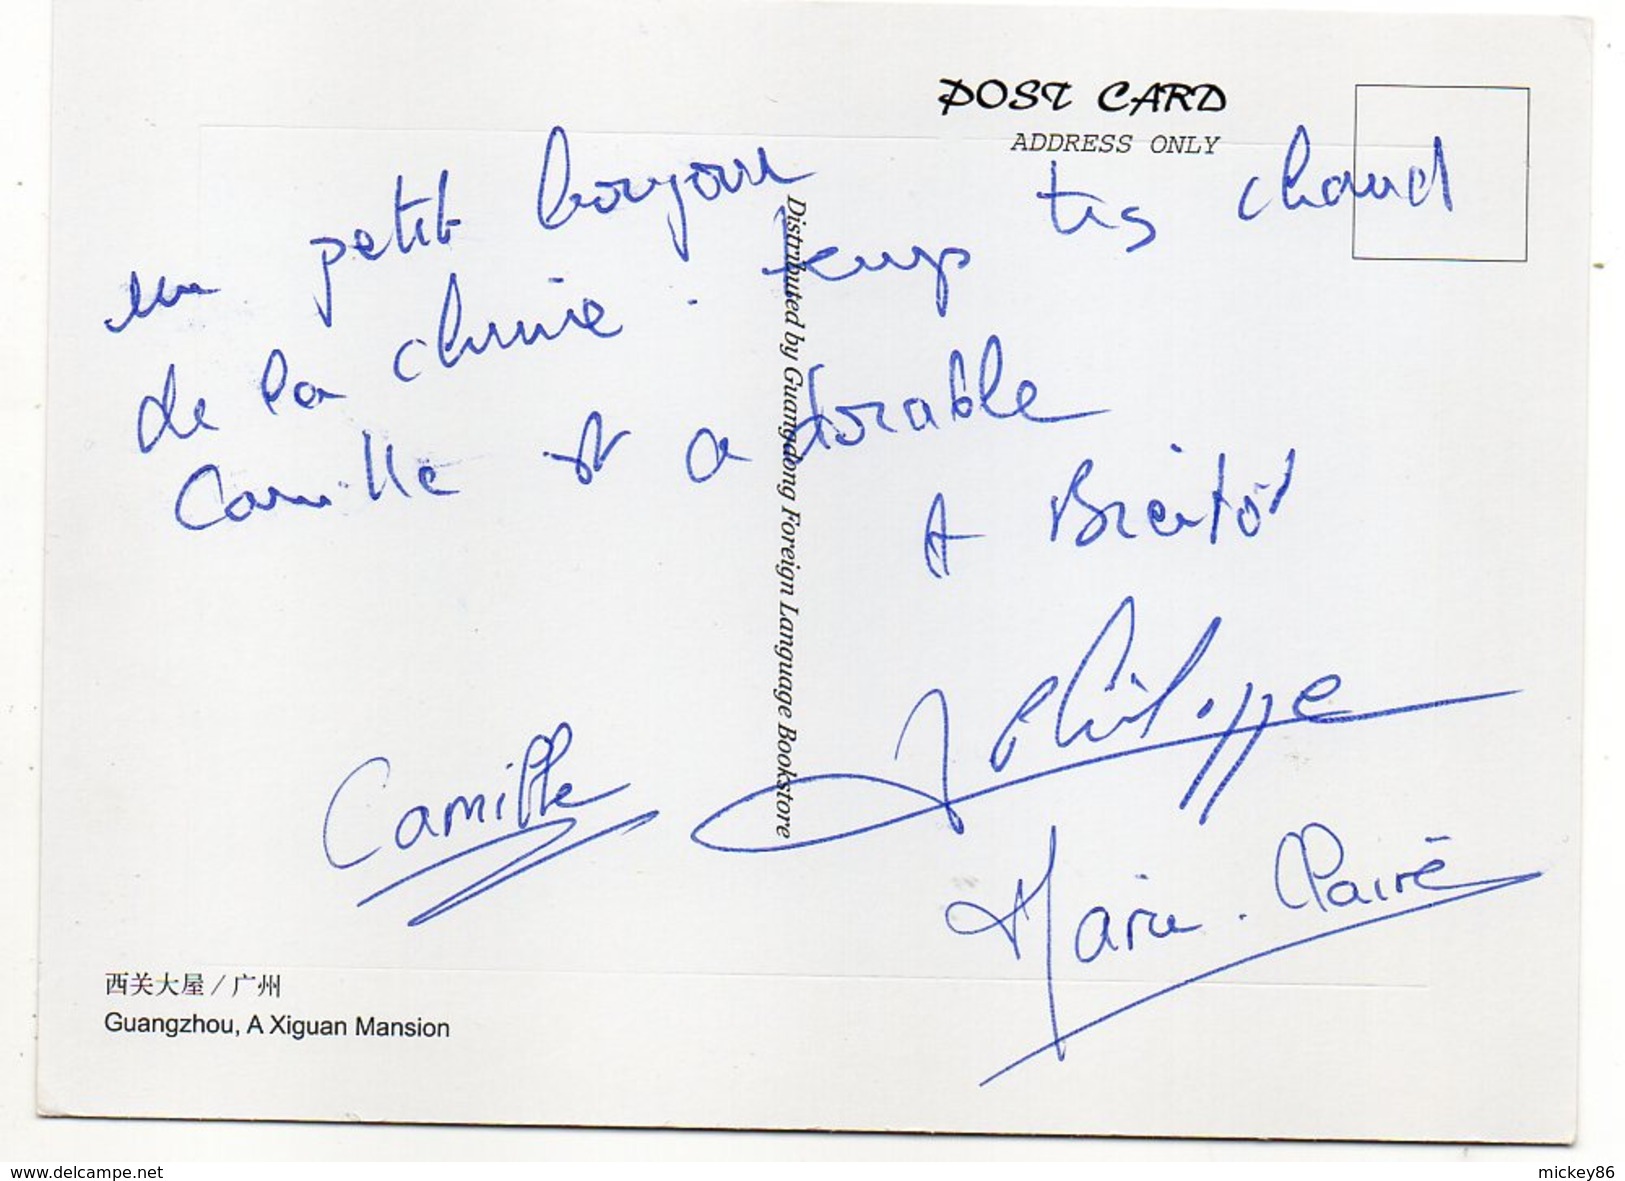 POST CARD
ADDRESS ONLY
un petit bonjour
de la chine . temps très chaud
Camille est adorable
A Bientôt
Philippe
Camille
Marie-Claire
Distributed by Guangdong Foreign Language Bookstore
西关大屋 / 广州
Guangzhou, A Xiguan Mansion
www.delcampe.net
mickey86